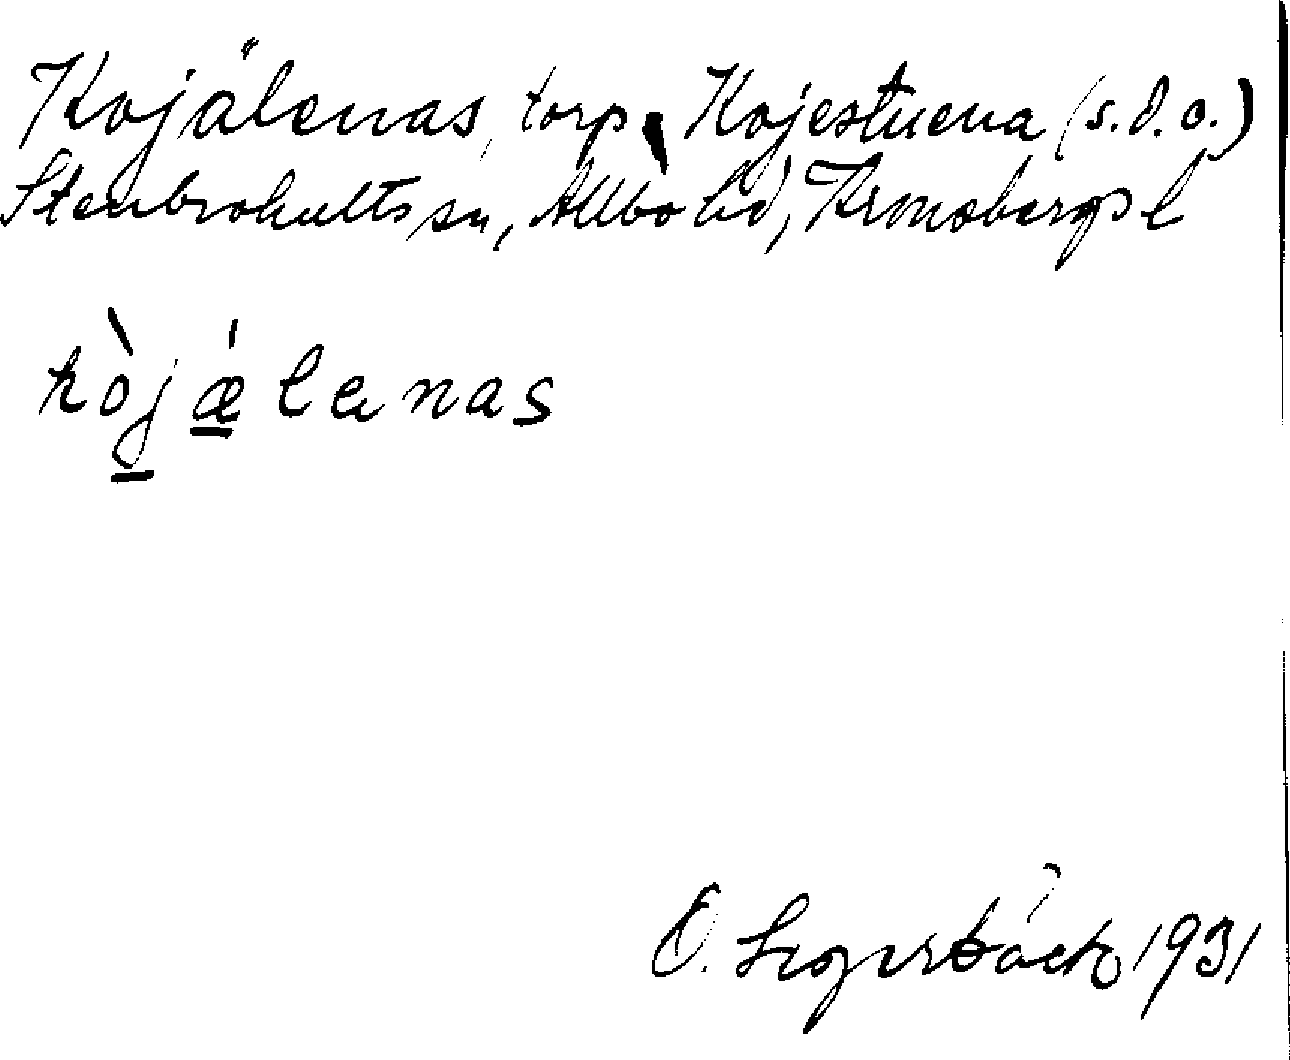 Kojälenas, torp, Kojestuena (s.d.o.)
Stenbrohults sn, Allbo hd, Kronobergs l
kòjǽlenas
O. 1931